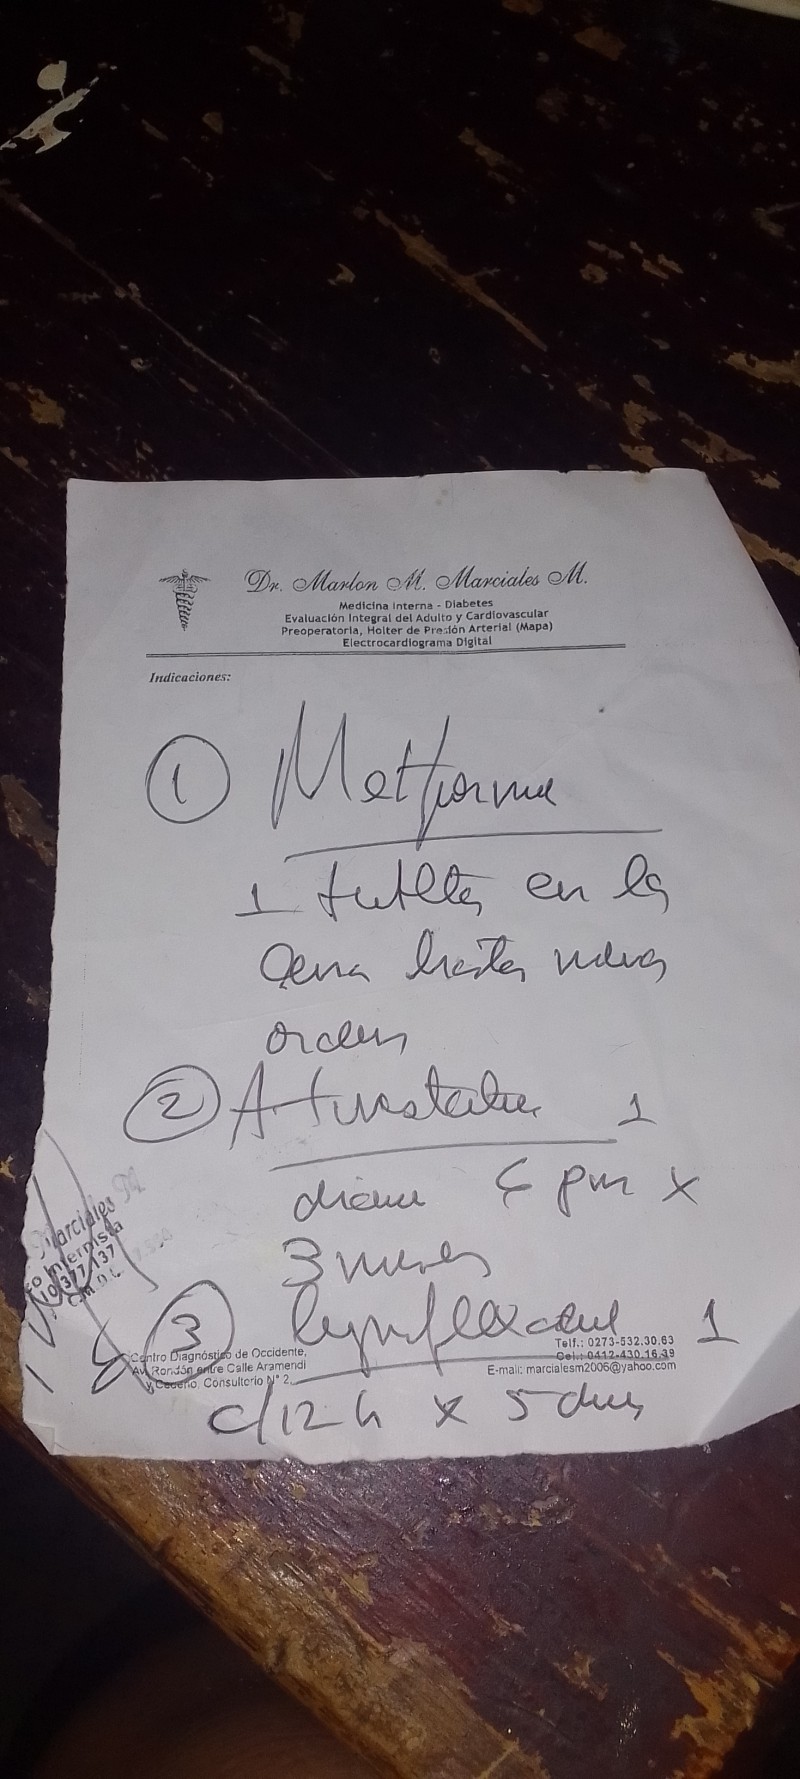 Dr. Marlon M. Marciales M.
Medicina Interna - Diabetes
Evaluación Integral del Adulto y Cardiovascular
Preoperatoria, Holter de Presión Arterial (Mapa)
Electrocardiograma Digital
Indicaciones:
① Metformina
1 tableta en la
cena hasta nueva
orden
② Atorvastatina 1
diaria 6 pm x
3 meses
③ 1
Marciales M
Internista
Centro Diagnóstico de Occidente,
Av. Rondón entre Calle Aramendi
y Cedeño, Consultorio N° 2.
Telf.: 0273-532.30.63
Cel.: 0412-430.16.39
E-mail: marcialesm2006@yahoo.com
c/12 h x 5 dias